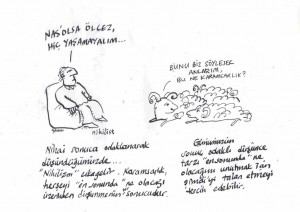 NAS'OLSA ÖLCEZ,
HİÇ YAŞAMAYALIM...
BUNU BİZ SÖYLESEK
ANLARIM,
BU NE KARAMSARLIK?
nihilist
Nihai sonuca odaklanarak
düşündüğümüzde...
"Nihilizm" . Karamsarlık,
herşeyi "en sonunda" ne olacağı
üzerinden düşünmenin sonucudur.
Günümüzün
sonuç odaklı düşünce
tarzı "en sonunda" ne
olacağını unutmak için
şimdiyi talan etmeyi
tercih edebilir.